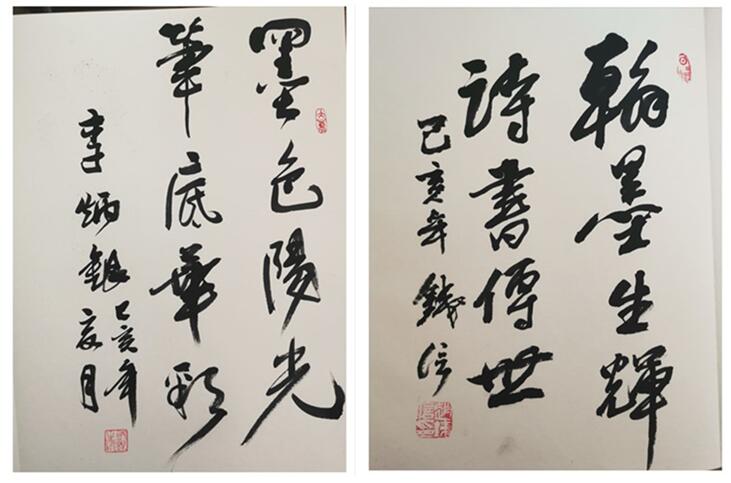 墨色陽光
筆底華彩
李炳銀己亥年
亥月
翰墨生輝
詩書傳世
己亥年錢信